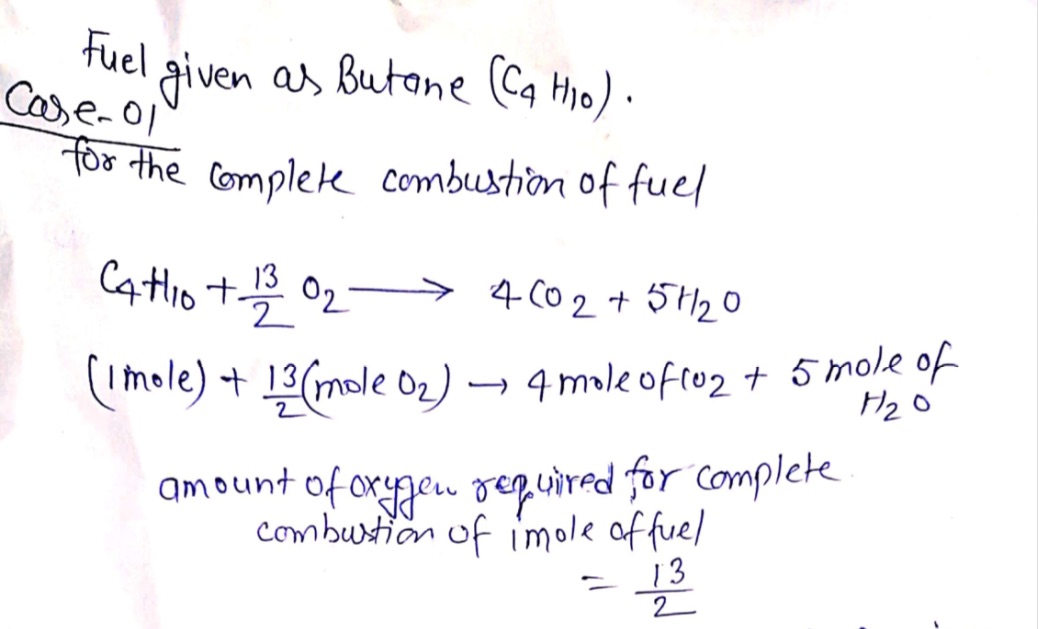 Fuel given as Butane (C4 H10).
Case-01
for the complete combustion of fuel
C4H10 + 13/2 O2 → 4CO2 + 5H2O
(1 mole) + 13/2 (mole O2) → 4 mole of CO2 + 5 mole of
H2O
amount of oxygen required for complete
combustion of 1mole of fuel
= 13/2